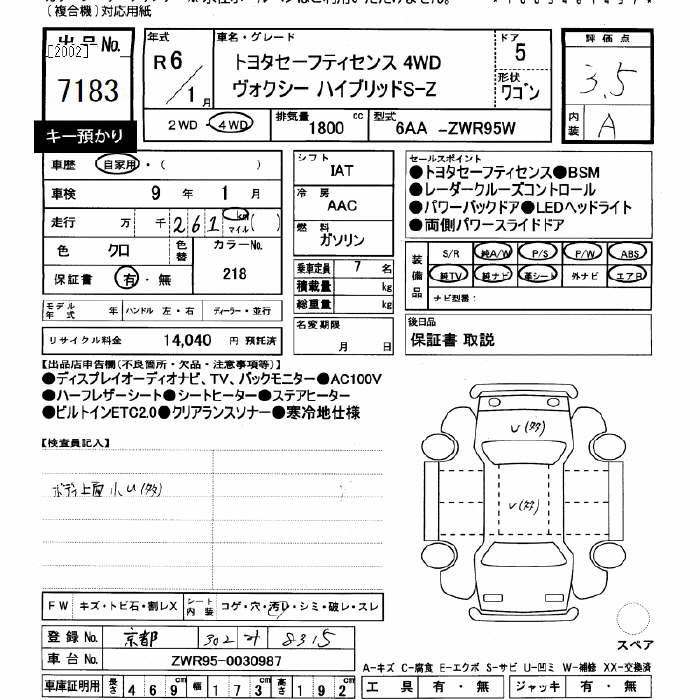 (複合機)対応用紙
出品No.
[2002]
7183
キー預かり
年式
R6/1月
車名・グレード
トヨタセーフティセンス 4WD
ヴォクシー ハイブリッドS-Z
ドア
5
形状
ワゴン
2WD・4WD
排気量 1800 cc
型式 6AA -ZWR95W
評価点
3.5
内装 A
車歴 自家用・( )
車検 9年 1月
走行 万 千 261 km マイル ( )
色 クロ 色替 カラーNo. 218
保証書 有・無
モデル年式 年 ハンドル 左・右 ディーラー・並行
リサイクル料金 14,040 円 預託済
シフト
IAT
冷房
AAC
燃料
ガソリン
乗車定員 7 名
積載量 kg
総重量 kg
名変期限
月 日
セールスポイント
●トヨタセーフティセンス●BSM
●レーダークルーズコントロール
●パワーバックドア●LEDヘッドライト
●両側パワースライドドア
装備品
S/R 純A/W P/S P/W ABS
純TV 純ナビ 革シート 外ナビ エアB
ナビ型番:
後日品
保証書 取説
【出品店申告欄(不良箇所・欠品・注意事項等)】
●ディスプレイオーディオナビ、TV、バックモニター●AC100V
●ハーフレザーシート●シートヒーター●ステアヒーター
●ビルトインETC2.0●クリアランスソナー●寒冷地仕様
【検査員記入】
ボディ上面 小U(タタ)
U(タタ)
U(タタ)
FW キズ・トビ石・割レX シート内装 コゲ・穴・汚レ・シミ・破レ・スレ
登録No. 京都 302 そ 8315
車台No. ZWR95-0030987
車庫証明用 長さ 469cm 幅 173cm 高さ 192cm
スペア
A-キズ C-腐食 E-エクボ S-サビ U-凹ミ W-補修 XX-交換済
工具 有・無 ジャッキ 有・無